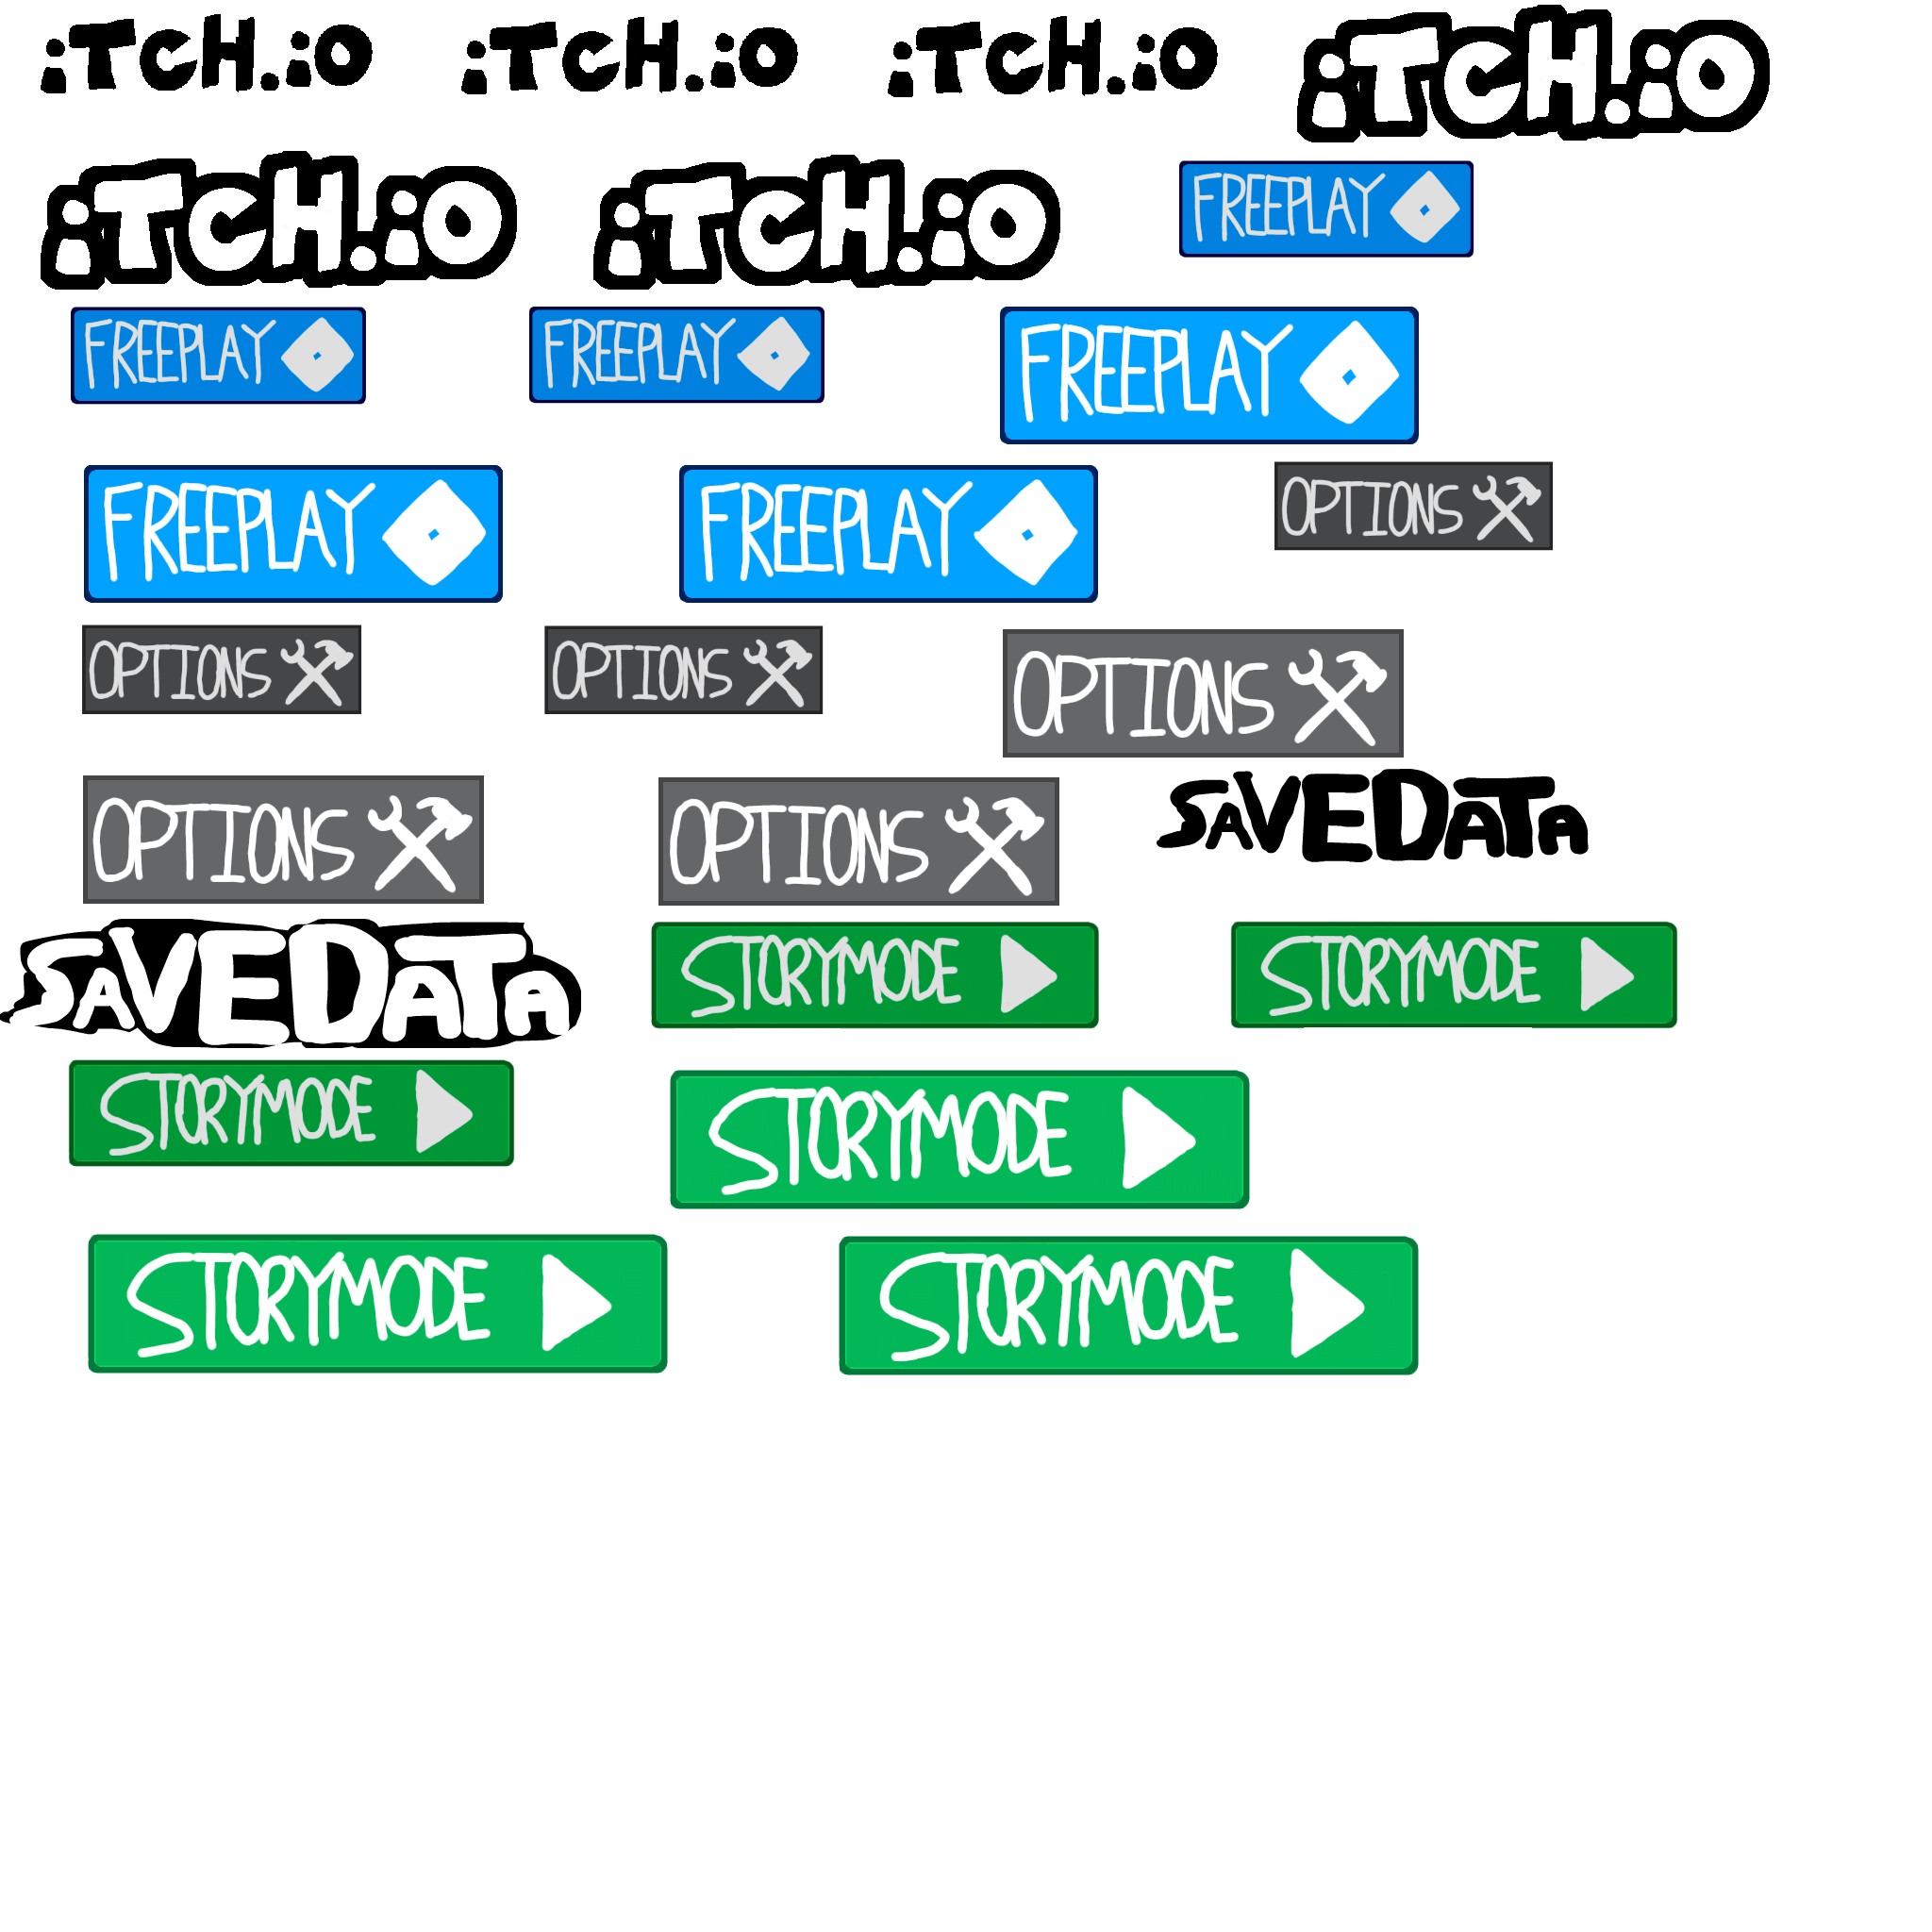 iTCH.iO iTCH.iO iTCH.iO iTCH.iO
iTCH.iO iTCH.iO FREEPLAY
FREEPLAY FREEPLAY FREEPLAY
FREEPLAY FREEPLAY OPTIONS
OPTIONS OPTIONS OPTIONS
OPTIONS OPTIONS SAVEDATA
SAVEDATA STORYMODE STORYMODE
STORYMODE STORYMODE
STORYMODE STORYMODE